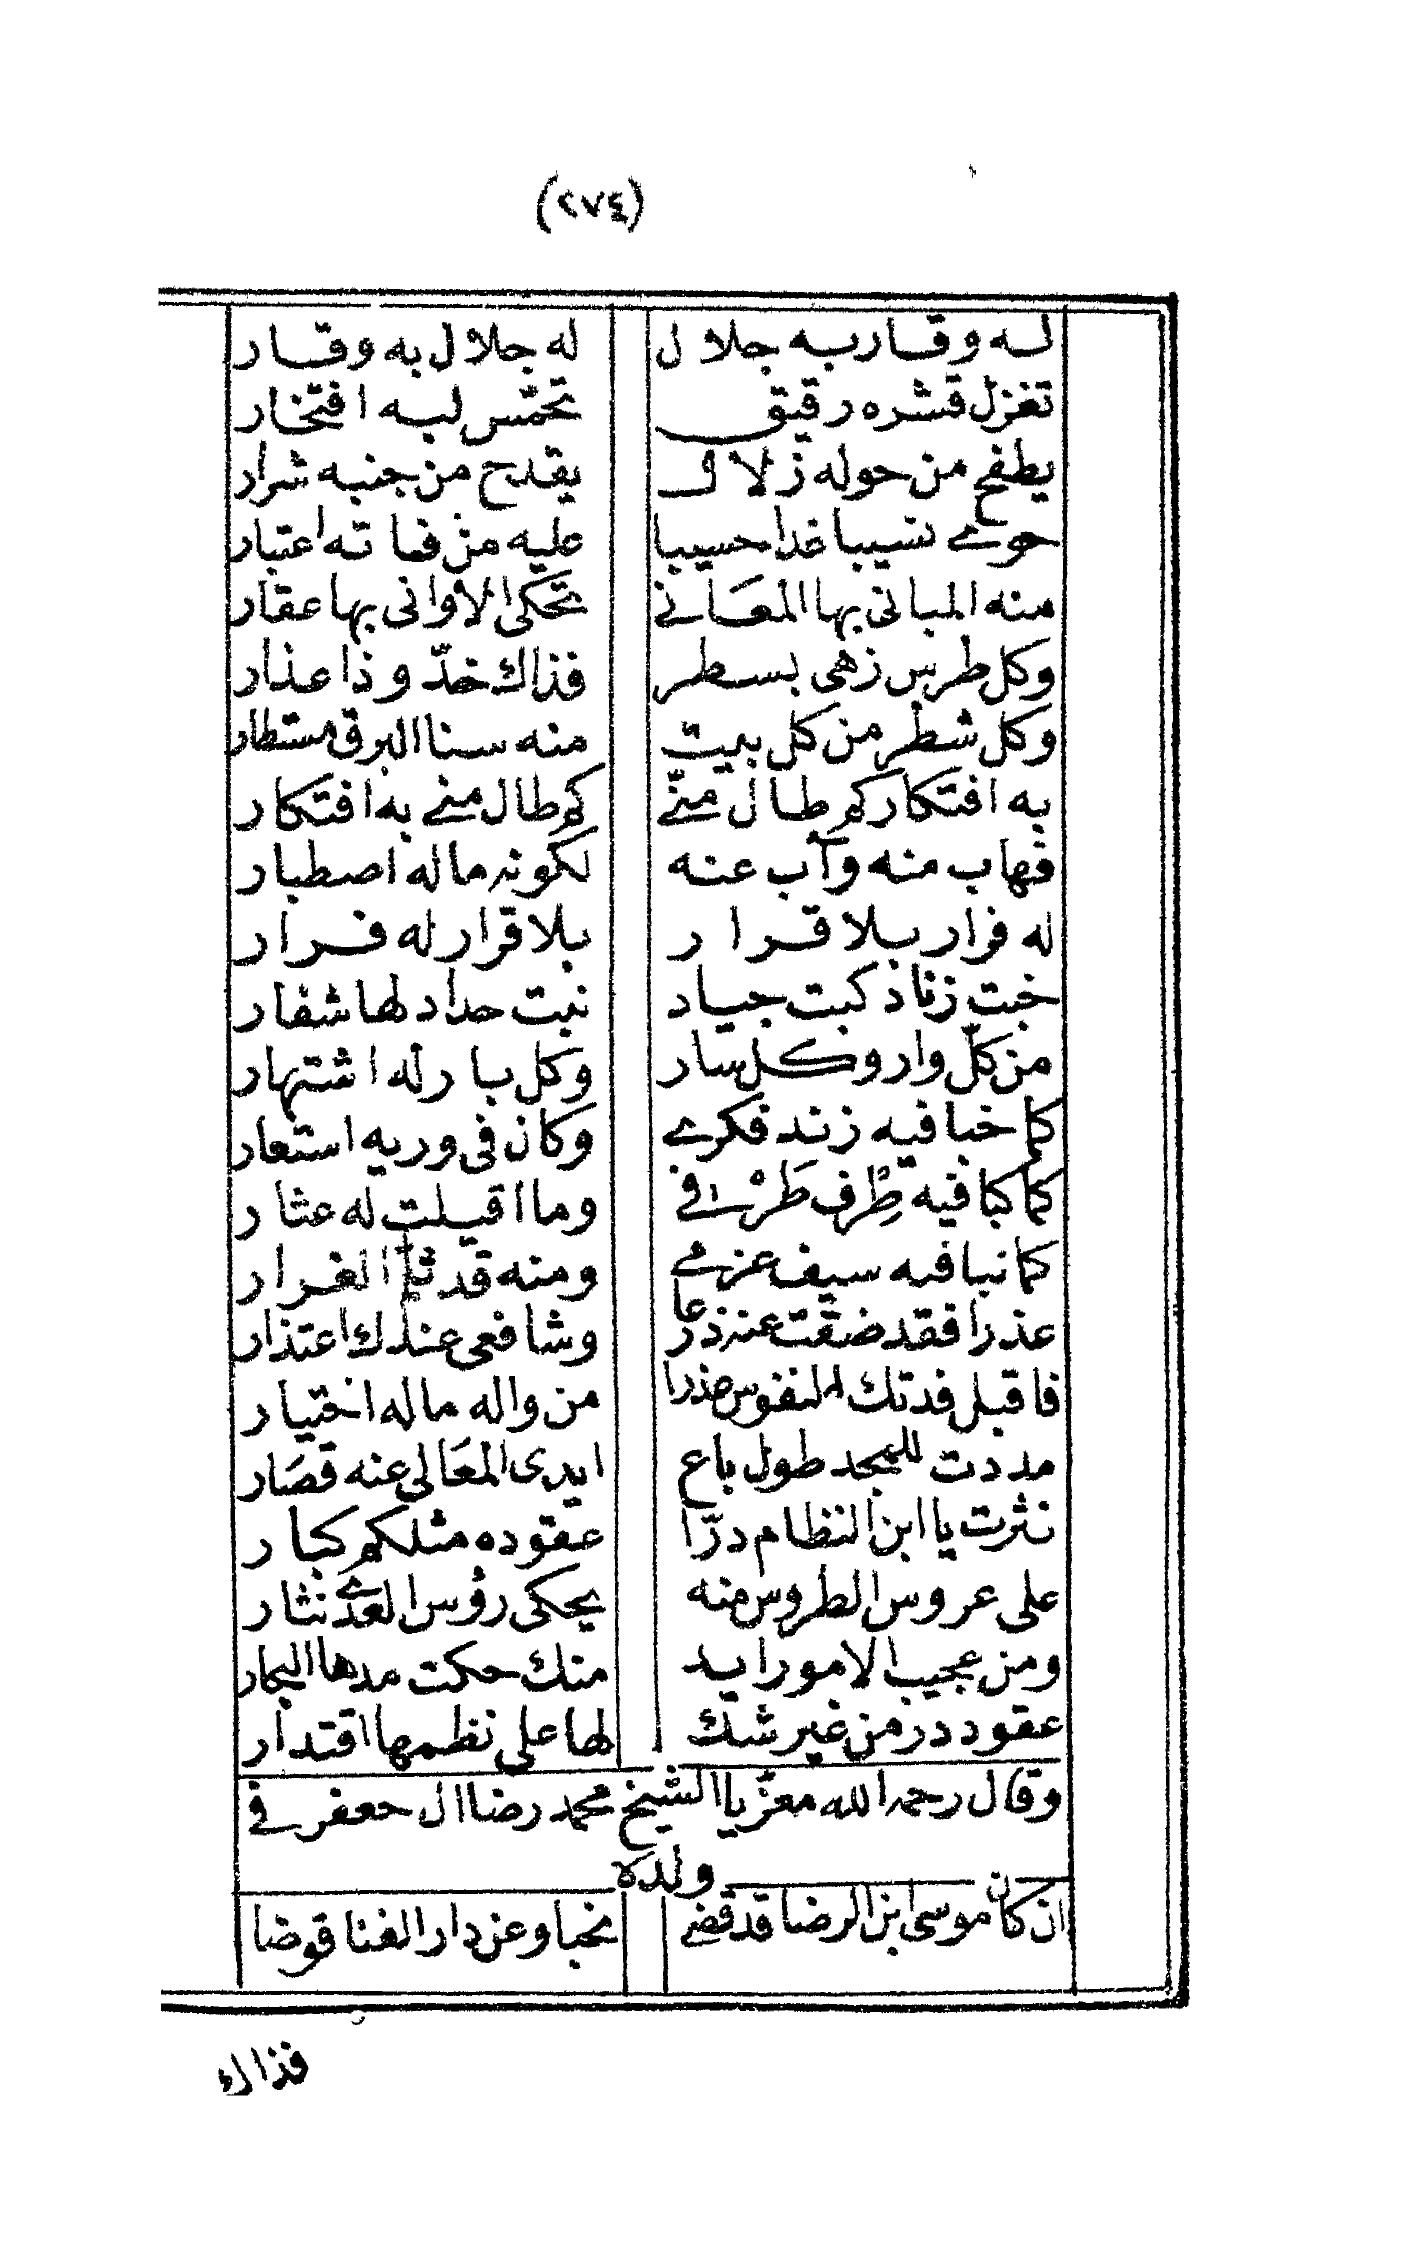 (٢٧٤)
لـه وقـار بـه جلال له جلال به وقـار
تغزل قشره رقيق تخمّس لبـه افتخار
يطفح من حوله زلال يقدح من جنبه شرار
حوى نسيبا غدا حسيبا عليه من فاته اعتبار
منه المباني بها المعاني تحكى الاوانى بها عقار
وكل طرس زهى بسطر فذاك خدّ وذا عذار
وكل شطر من كل بيت منه سنا البرق مستطار
به افتكاركم طال منّي كم طال مني به افتكار
فهاب منه وآب عنه لكونه ماله اصطبار
له فرار بلا قرار بلا قرار له فرار
خبت زناد كبت جياد نبت حداد لها شفار
من كلّ وار وكل سار وكل بار له اشتهار
كما خبا فيه زند فكري وكان في وريه استعار
كما كبا فيه طرف طرفي وما اقيلت له عثار
كما نبا فيه سيف عزمي ومنه قد ثلم الغرار
عذرا فقد ضقت عنه ذرعا وشافعى عندك اعتذار
فاقبل فدتك النفوس عذرا من واله ماله اختيار
مددت للمجد طول باع ايدى المعالى عنه قصار
نثرت يا ابن النظام درّا عقوده مثلكم كبار
على عروس الطروس منه يحكى رؤس العدى نثار
ومن عجيب الامور ايد منك حكت مدها البحار
عقود در من غير شك لها على نظمها اقتدار
وقال رحمه الله معزّيا الشيخ محمد رضا ال جعفر في
ولده
ان كان موسى ابن الرضا قد قضى نحبا وعن دار الفنا قوضا
فذاك